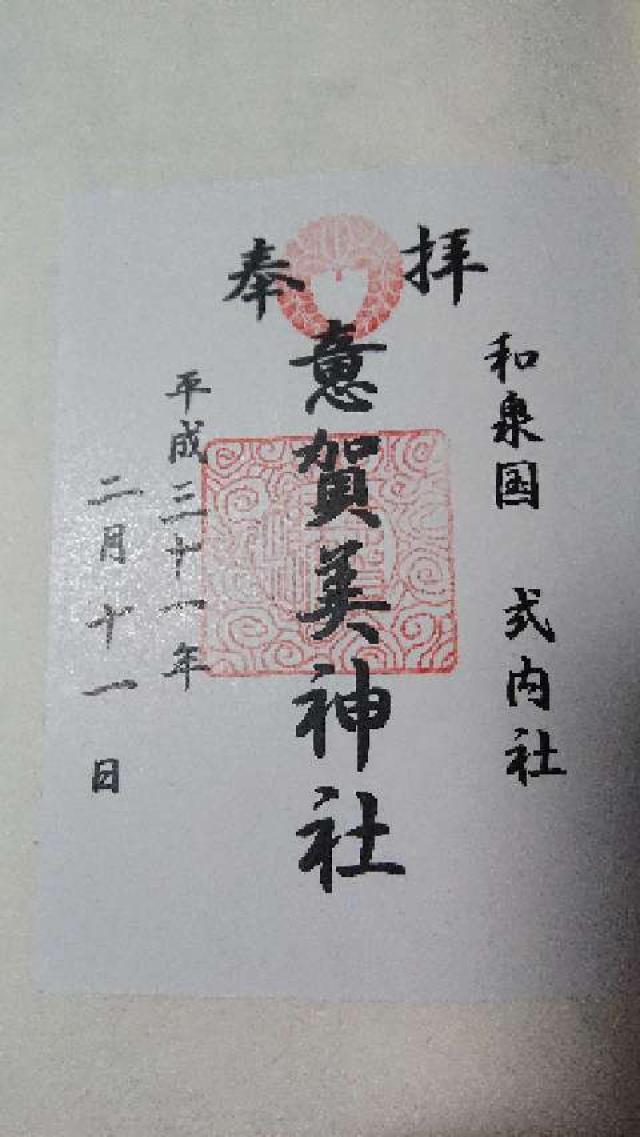 奉拝
和泉国 式内社
意賀美神社
平成三十一年
二月十一日